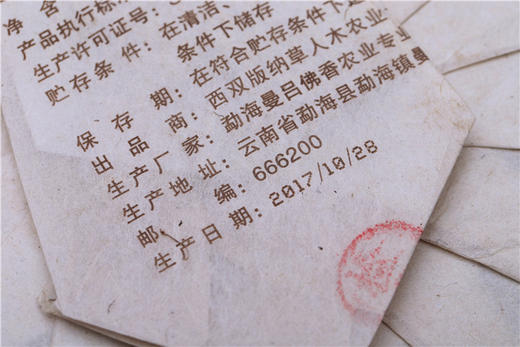 净 含
产品执行标
生产许可证号：
贮存条件：在清洁、
条件下储存
保存期：在符合贮存条件下
出品商：西双版纳草人木农业
生产厂家：勐海曼吕佛香农业专业
生产地址：云南省勐海县勐海镇曼
邮编：666200
生产日期：2017/10/28